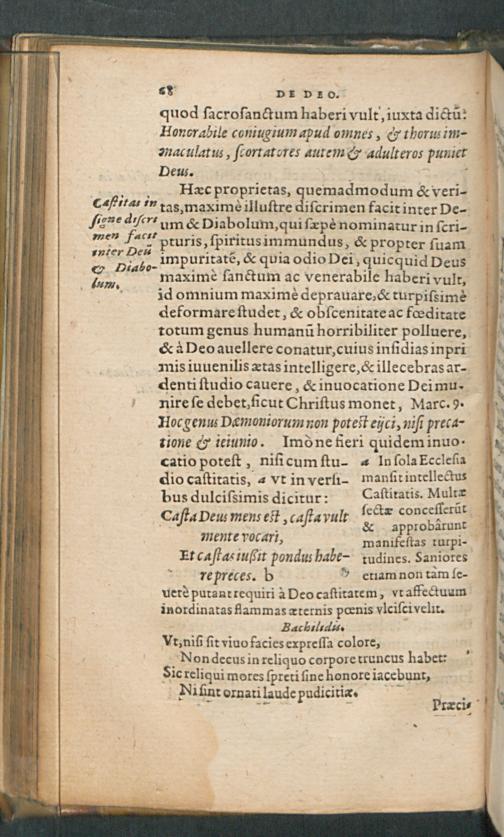 68 DE DEO.
quod sacrosanctum haberi vult, iuxta dictũ:
Honorabile coniugium apud omnes, & thorus im-
maculatus, scortatores autem & adulteros puniet
Deus.
Hæc proprietas, quemadmodum & veri-
tas, maximè illustre discrimen facit inter De-
um & Diabolum, qui sæpè nominatur in scri-
pturis, spiritus immundus, & propter suam
impuritatẽ, & quia odio Dei, quicquid Deus
maximè sanctum ac venerabile haberi vult,
id omnium maximè deprauare, & turpissimè
deformare studet, & obscenitate ac fœditate
totum genus humanũ horribiliter polluere,
& à Deo auellere conatur, cuius insidias inpri
mis iuuenilis ætas intelligere, & illecebras ar-
denti studio cauere, & inuocatione Dei mu-
nire se debet, sicut Christus monet, Marc. 9.
Hoc genus Dæmoniorum non potest eijci, nisi preca-
tione & ieiunio. Imò ne fieri quidem inuo-
catio potest, nisi cum stu-
dio castitatis, a vt in versi-
bus dulcissimis dicitur:
Casta Deus mens est, casta vult
mente vocari,
Et castas iußit pondus habe-
re preces. b
Castitas in
signe discri
men facit
inter Deũ
& Diabo-
lum.
a In sola Ecclesia
mansit intellectus
Castitatis. Multæ
sectæ concesserũt
& approbârunt
manifestas turpi-
tudines. Saniores
etiam non tam se-
uerè putant requiri à Deo castitatem, vt affectuum
inordinatas flammas æternis pœnis vlcisci velit.
Bachilidis.
Vt, nisi sit viuo facies expressa colore,
Non decus in reliquo corpore truncus habet:
Sic reliqui mores spreti sine honore iacebunt,
Ni sint ornati laude pudicitiæ.
Præci-